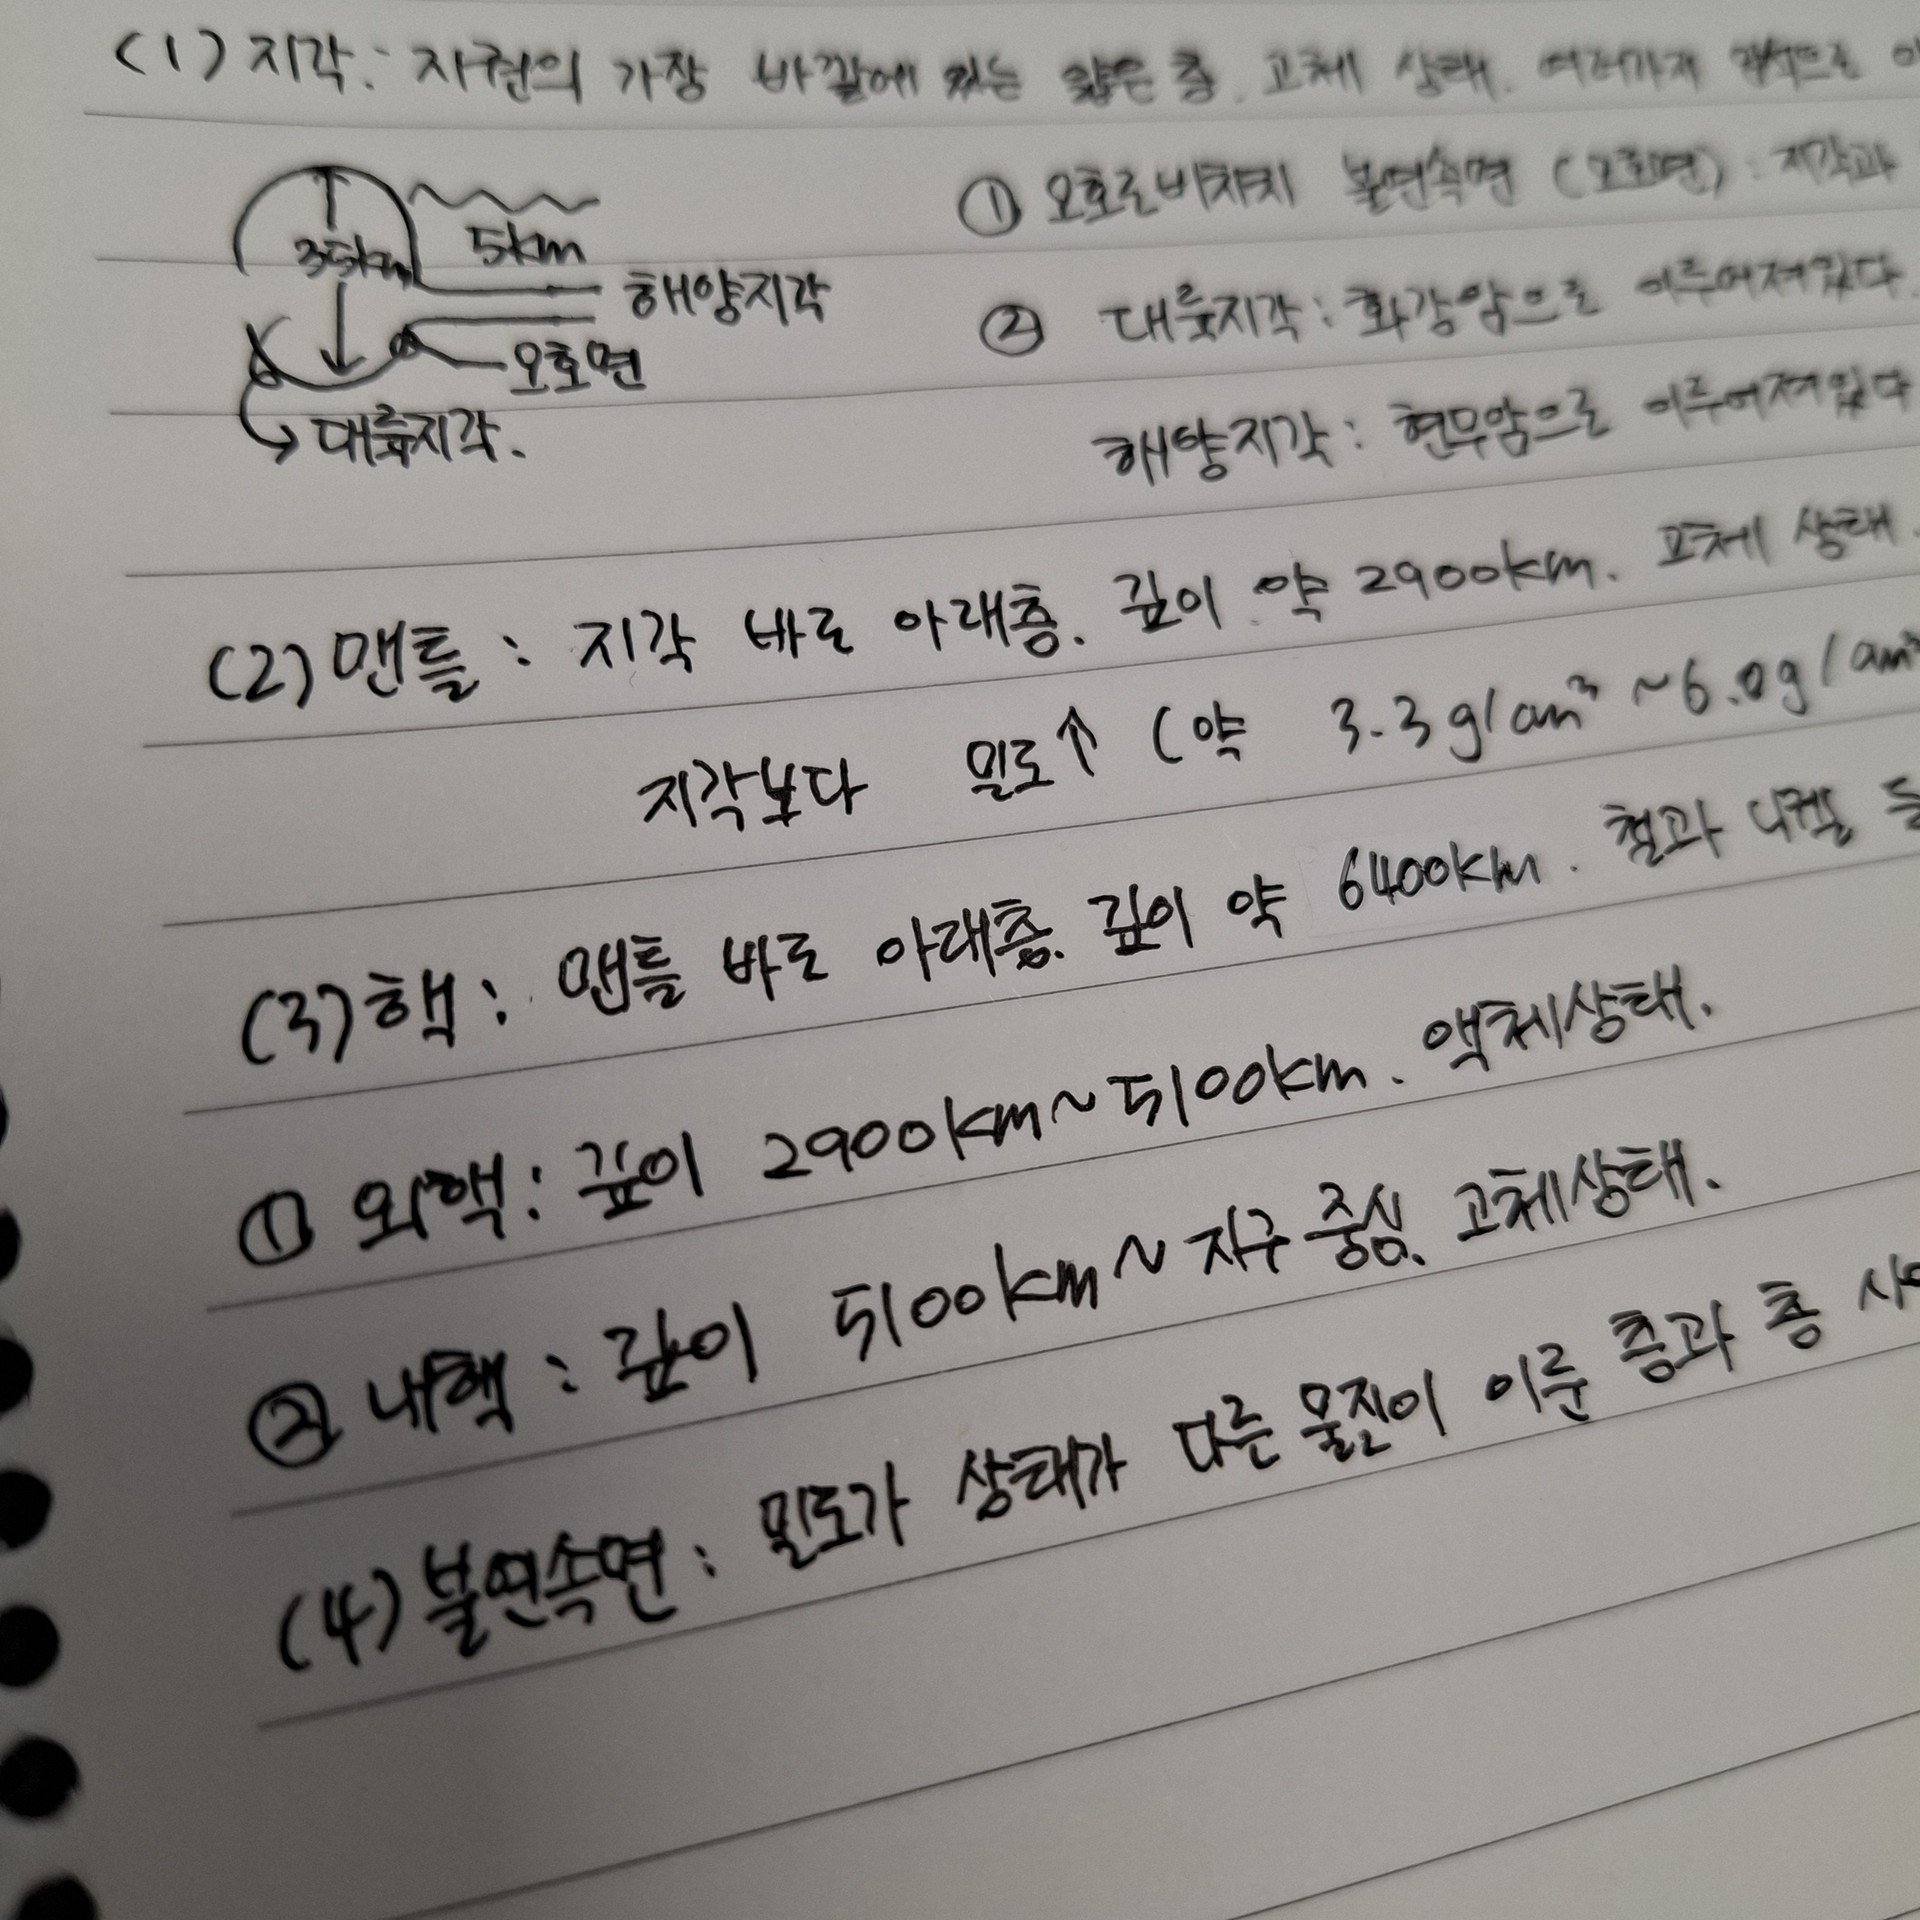 (1) 지각: 지권의 가장 바깥에 있는 얇은 층. 고체 상태. 여러가지 암석으로 이
35km
5km
해양지각
모호면
대륙지각.
① 모호로비치치 불연속면 (모호면): 지각과
② 대륙지각: 화강암으로 이루어져있다.
해양지각: 현무암으로 이루어져있다
(2) 맨틀: 지각 바로 아래층. 깊이 약 2900km. 고체 상태.
지각보다 밀도↑ (약 3.3g/cm³ ~6.0g/cm³
(3) 핵: 맨틀 바로 아래층. 깊이 약 6400km. 철과 니켈 등
① 외핵: 깊이 2900km~5100km. 액체상태.
② 내핵: 깊이 5100km~지구 중심. 고체상태.
(4) 불연속면: 밀도가 상태가 다른 물질이 이룬 층과 층 사이